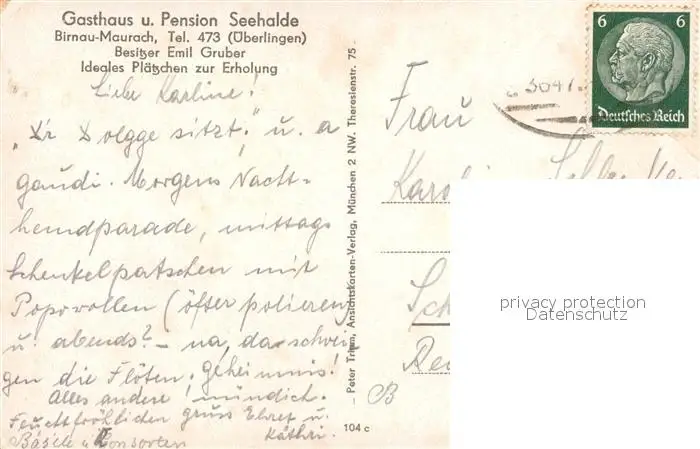 Gasthaus u. Pension Seehalde
Birnau-Maurach, Tel. 473 (Überlingen)
Besitzer Emil Gruber
Ideales Plätzchen zur Erholung
Liebe Karline!
"D'r Dolgge sitzt." u. a
gaudi. Morgens Nacht-
hemdparade, mittags
Schenkelpatschen mit
Popovollen (öfter polieren)
u. abends? – na, da schwei
gen die Flöten, geheimnis!
Alles andere mündich.
Feuchtfröhlichen gruss Ehret u.
Käthri.
Bäsele u Konsorten
- Peter Trimm, Ansichtskarten-Verlag, München 2 NW. Theresienstr. 75 -
104 c
Frau
6 6
Deutsches Reich
privacy protection
Datenschutz